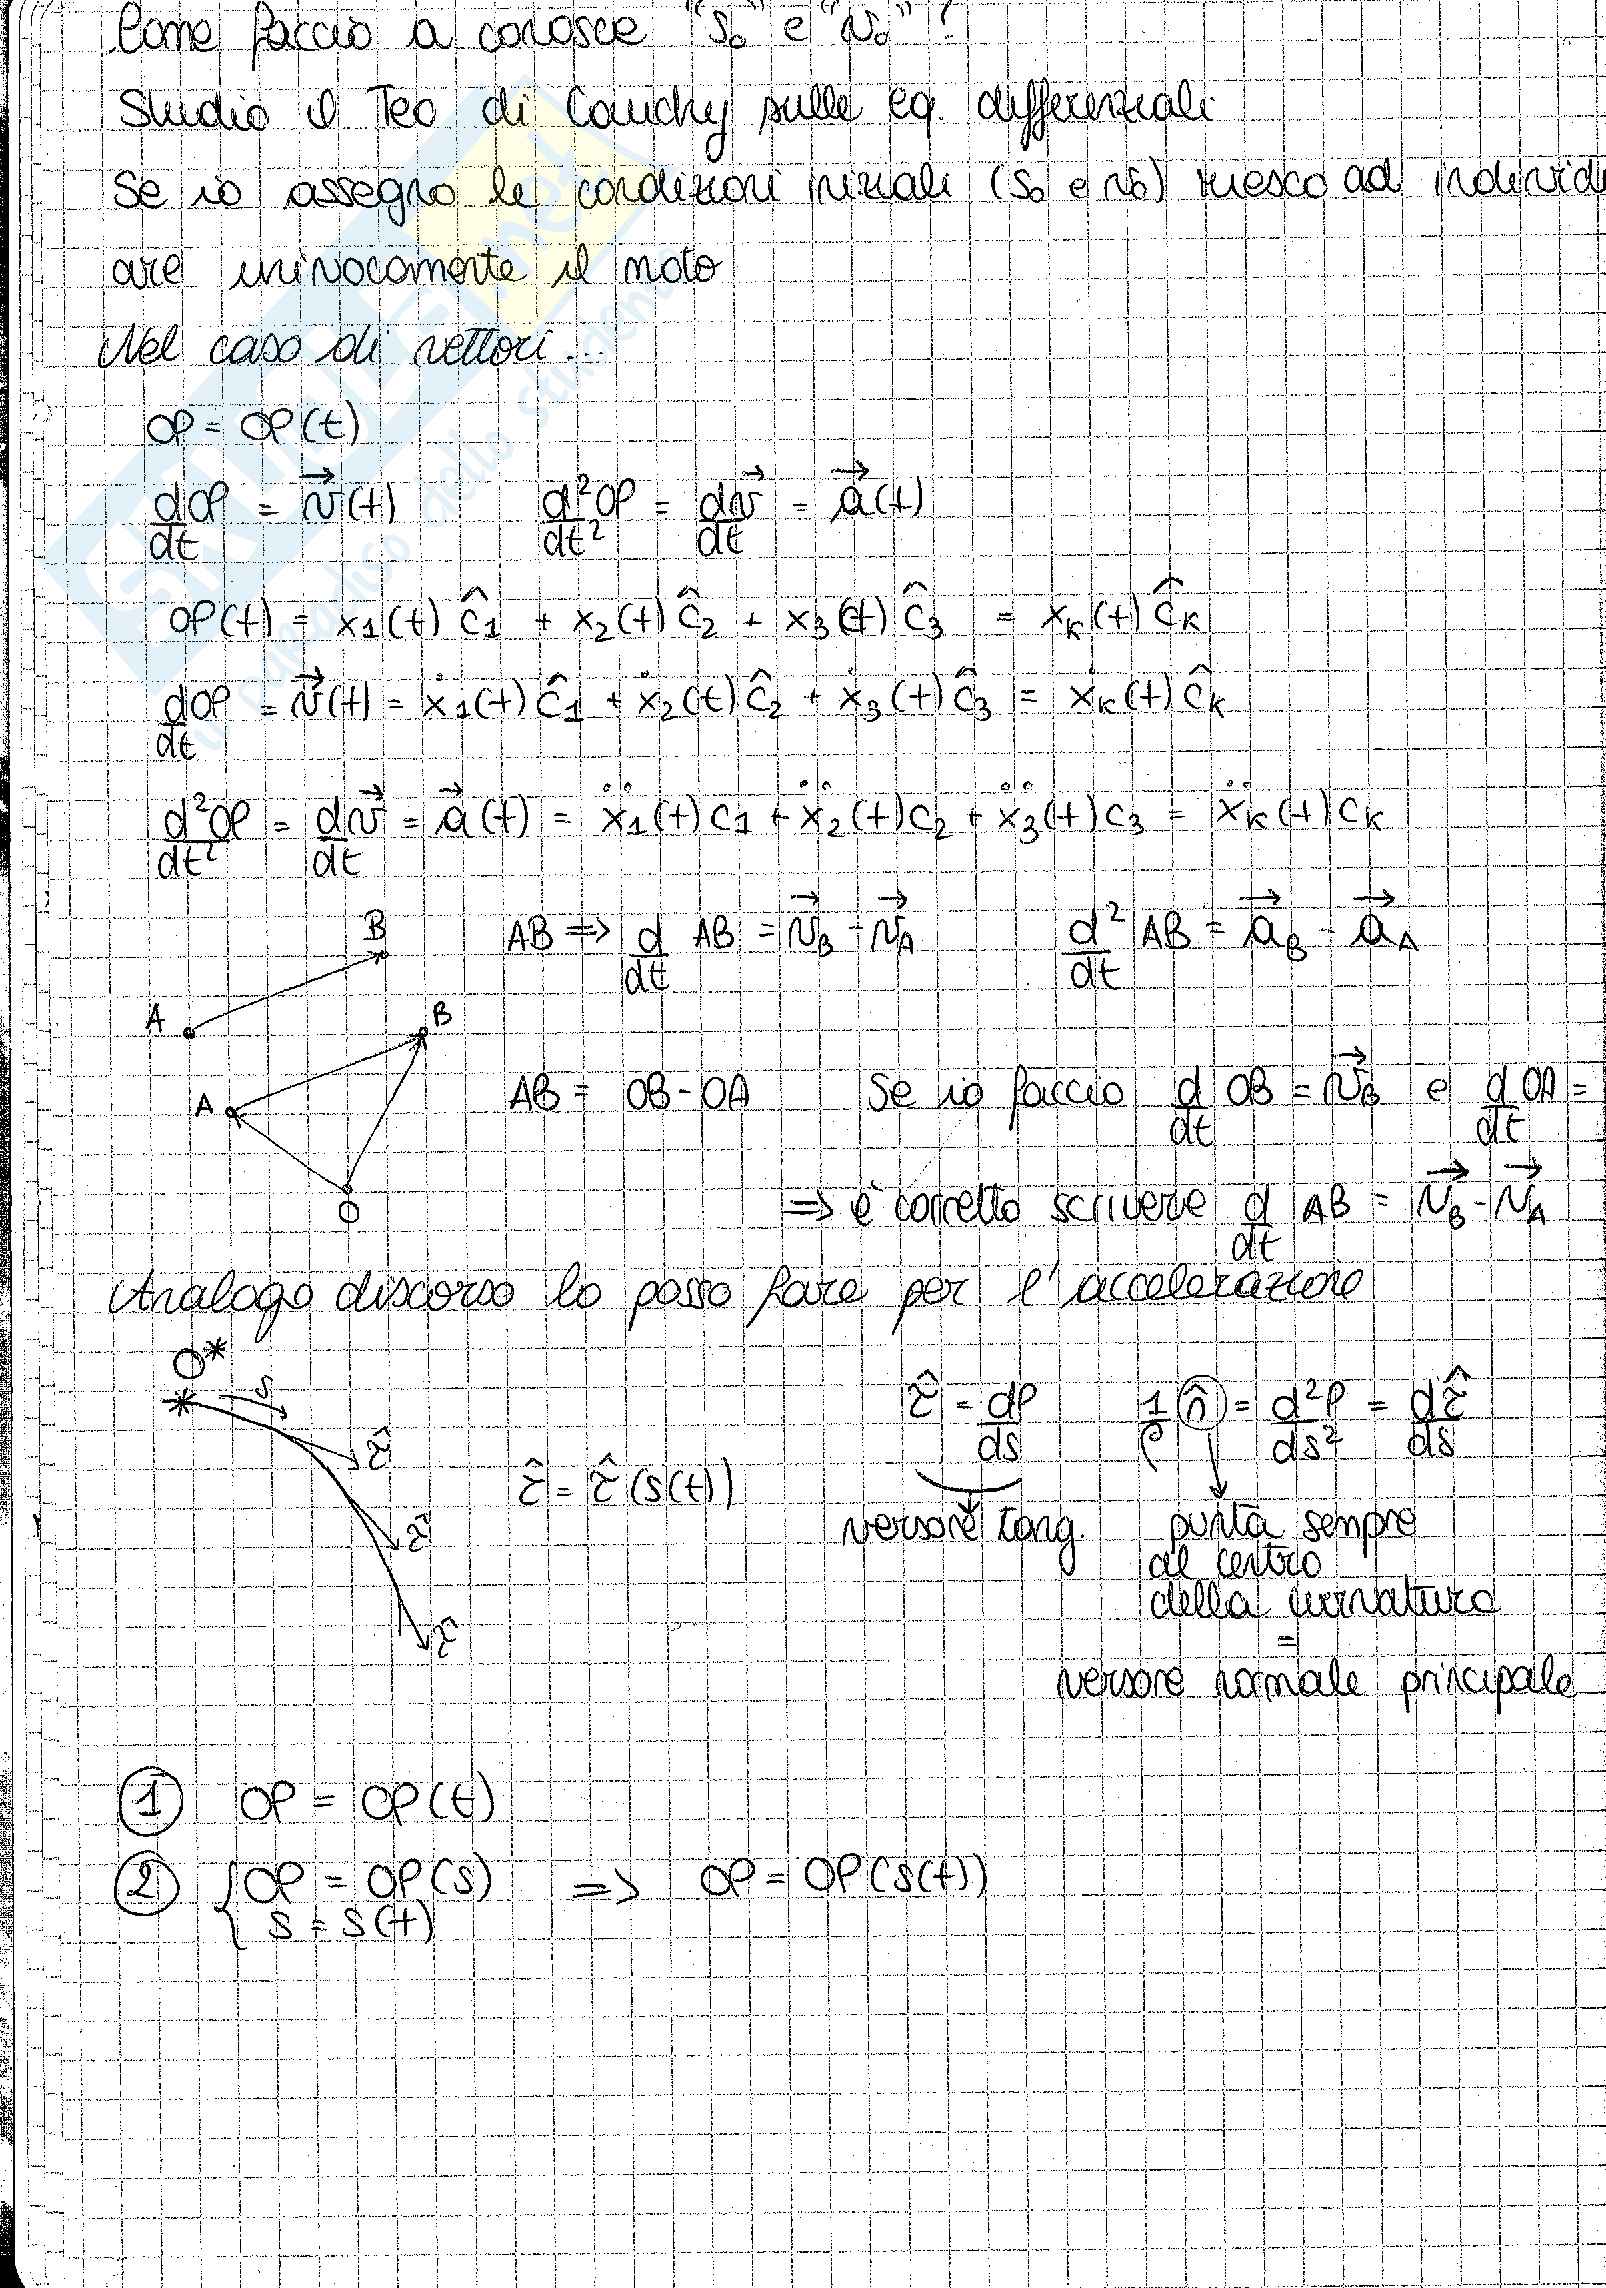 Come faccio a conosce "s₀" e "v₀"?
Studio il Teo di Cauchy sulle eq. differenziali
Se io assegno le condizioni iniziali (s₀ e v₀) riesco ad individu
are univocamente il moto
Nel caso di vettori...
OP = OP(t)
d/dt OP = v⃗(t)    d²/dt² OP = dv⃗/dt = a⃗(t)
OP(t) = x₁(t) ĉ₁ + x₂(t) ĉ₂ + x₃(t) ĉ₃ = xₖ(t) ĉₖ
d/dt OP = v⃗(t) = ẋ₁(t) ĉ₁ + ẋ₂(t) ĉ₂ + ẋ₃(t) ĉ₃ = ẋₖ(t) ĉₖ
d²/dt² OP = dv⃗/dt = a⃗(t) = ẍ₁(t) c₁ + ẍ₂(t) c₂ + ẍ₃(t) c₃ = ẍₖ(t) cₖ
A B    AB => d/dt AB = v⃗_B - v⃗_A    d²/dt AB = a⃗_B - a⃗_A
A B O    AB = OB - OA    Se io faccio d/dt OB = v⃗_B e d/dt OA =
=> è corretto scrivere d/dt AB = v⃗_B - v⃗_A
Analogo discorso lo posso fare per l'accelerazione
O* s τ̂ τ̂ τ̂
τ̂ = τ̂(s(t))    τ̂ = dP/ds    1/ρ n̂ = d²P/ds² = dτ̂/ds
versore tang.    punta sempre
al centro
della curvatura
=
versore normale principale
① OP = OP(t)
② { OP = OP(s)    => OP = OP(s(t))
s = s(t)